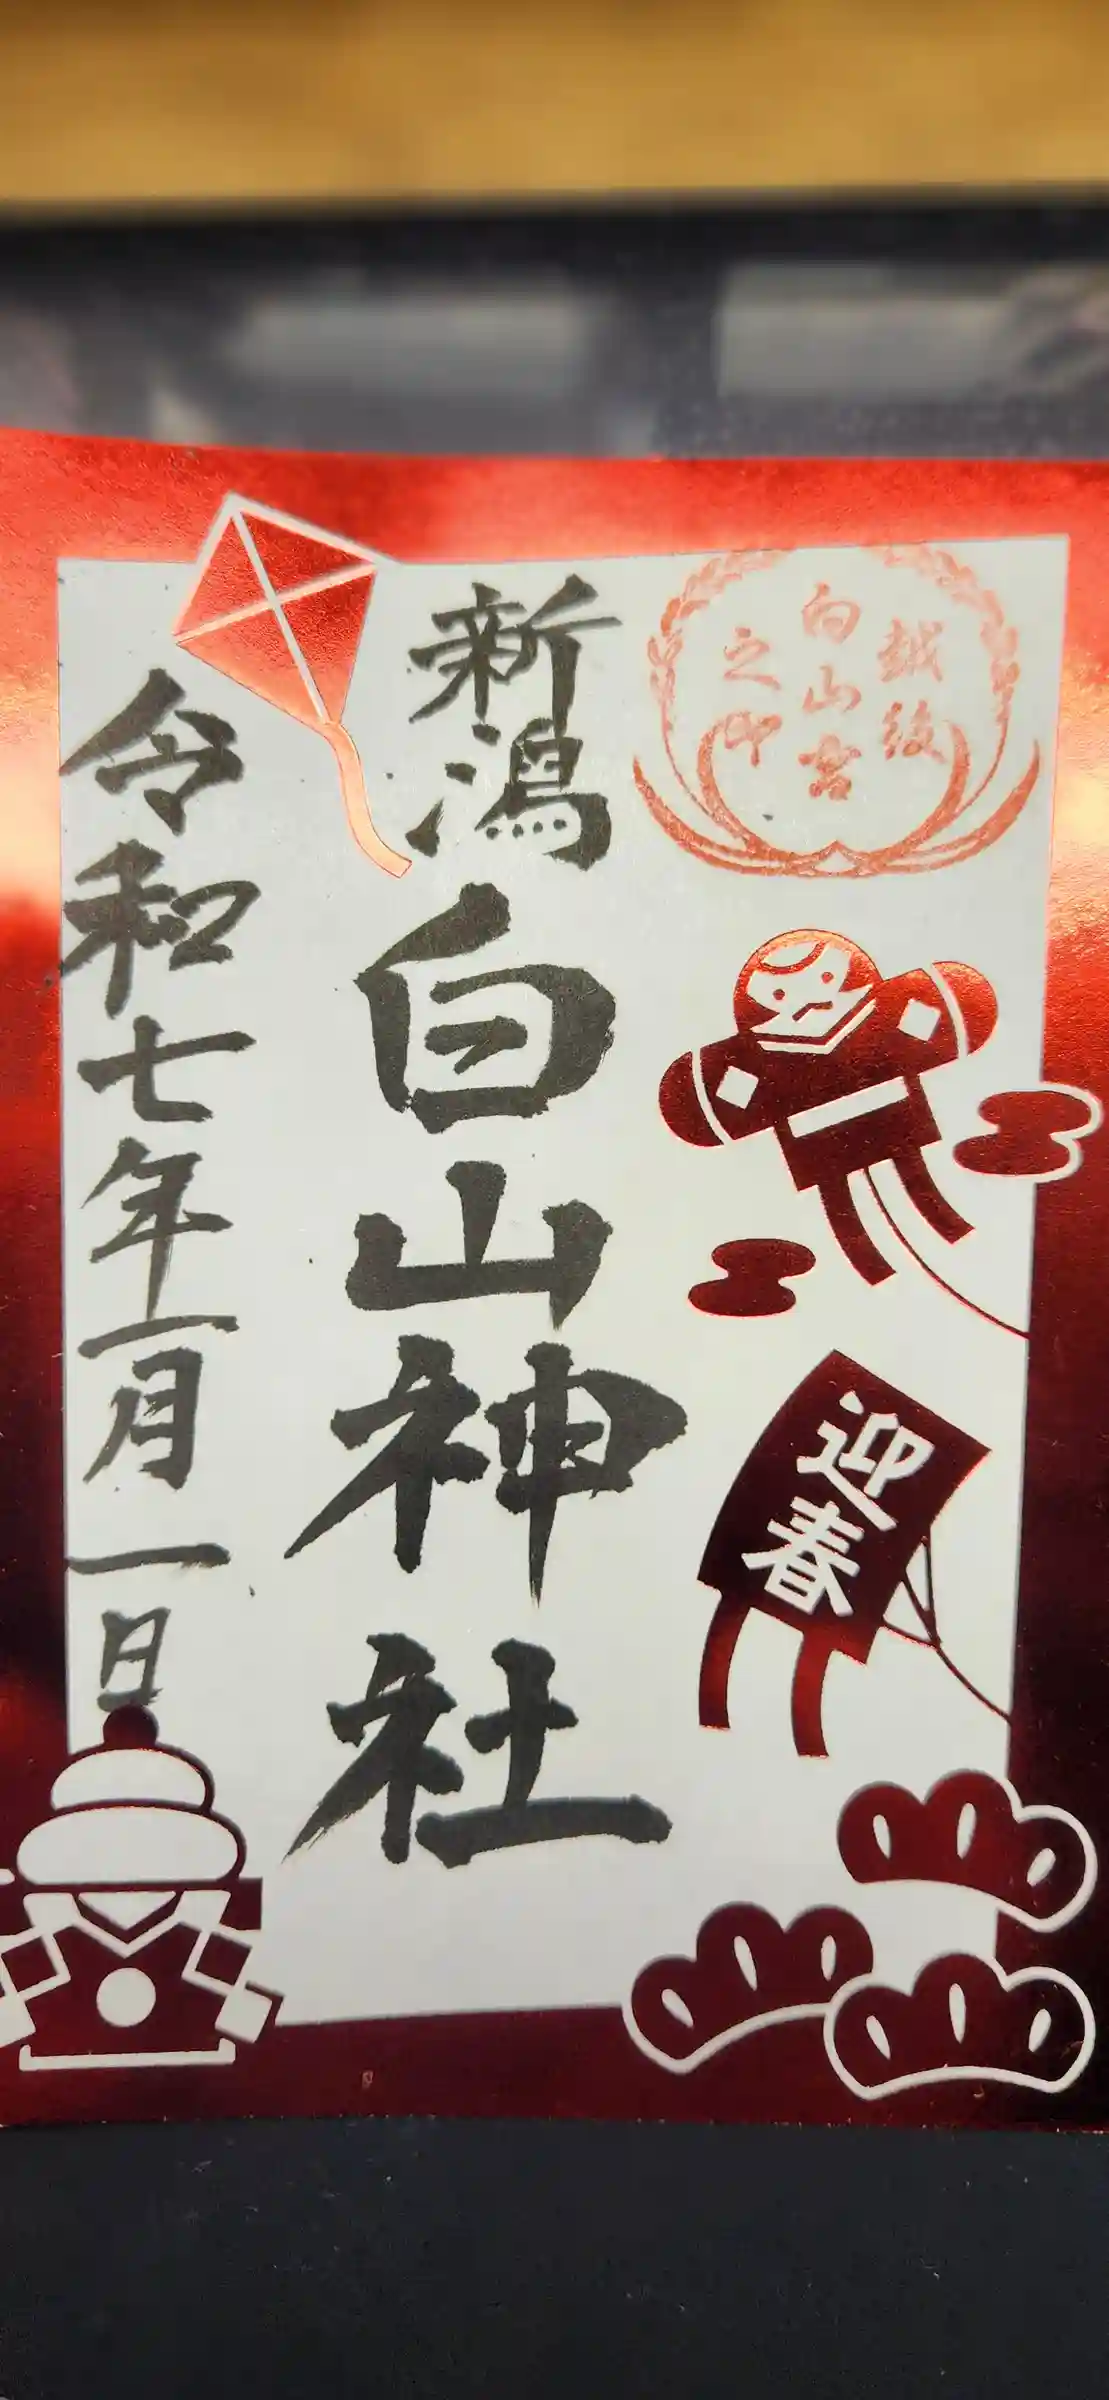 越後
白山宮
之印
迎春
新潟白山神社
令和七年一月一日